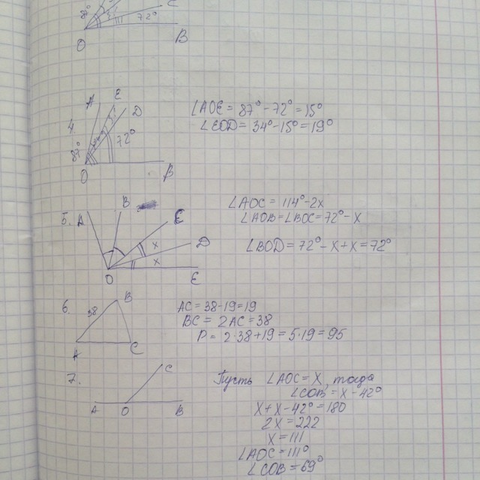 C
72°
O B
4
A E D
87° 72°
O B
∠AOE = 87° - 72° = 15°
∠EOD = 34° - 15° = 19°
5. A B C
x D
O x E
∠AOC = 114° - 2x
∠AOB = ∠BOC = 72° - x
∠BOD = 72° - x + x = 72°
6. 38 B
A C
AC = 38 - 19 = 19
BC = 2AC = 38
P = 2·38 + 19 = 5·19 = 95
7. C
A O B
Пусть ∠AOC = x, тогда
∠COB = x - 42°
x + x - 42° = 180
2x = 222
x = 111
∠AOC = 111°
∠COB = 69°